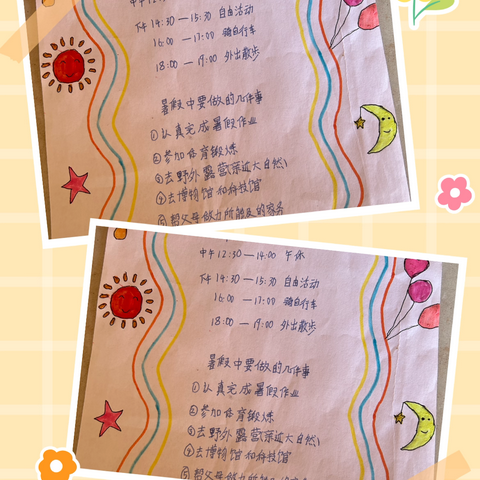 下午 14:30 — 15:30 自由活动
16:00 — 17:00 骑自行车
18:00 — 19:00 外出散步
暑假中要做的几件事
①认真完成暑假作业
②参加体育锻炼
③去野外露营(亲近大自然)
④去博物馆和科技馆
⑤帮父母做力所能及的家务
中午12:30 — 14:00 午休
下午 14:30 — 15:30 自由活动
16:00 — 17:00 骑自行车
18:00 — 19:00 外出散步
暑假中要做的几件事
①认真完成暑假作业
②参加体育锻炼
③去野外露营(亲近大自然)
④去博物馆和科技馆
⑤帮父母做力所能及的家务